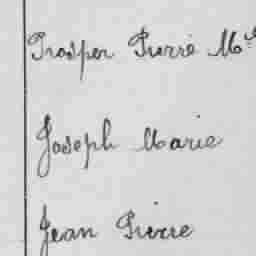 Prosper Pierre M
Joseph Marie
Jean Pierre